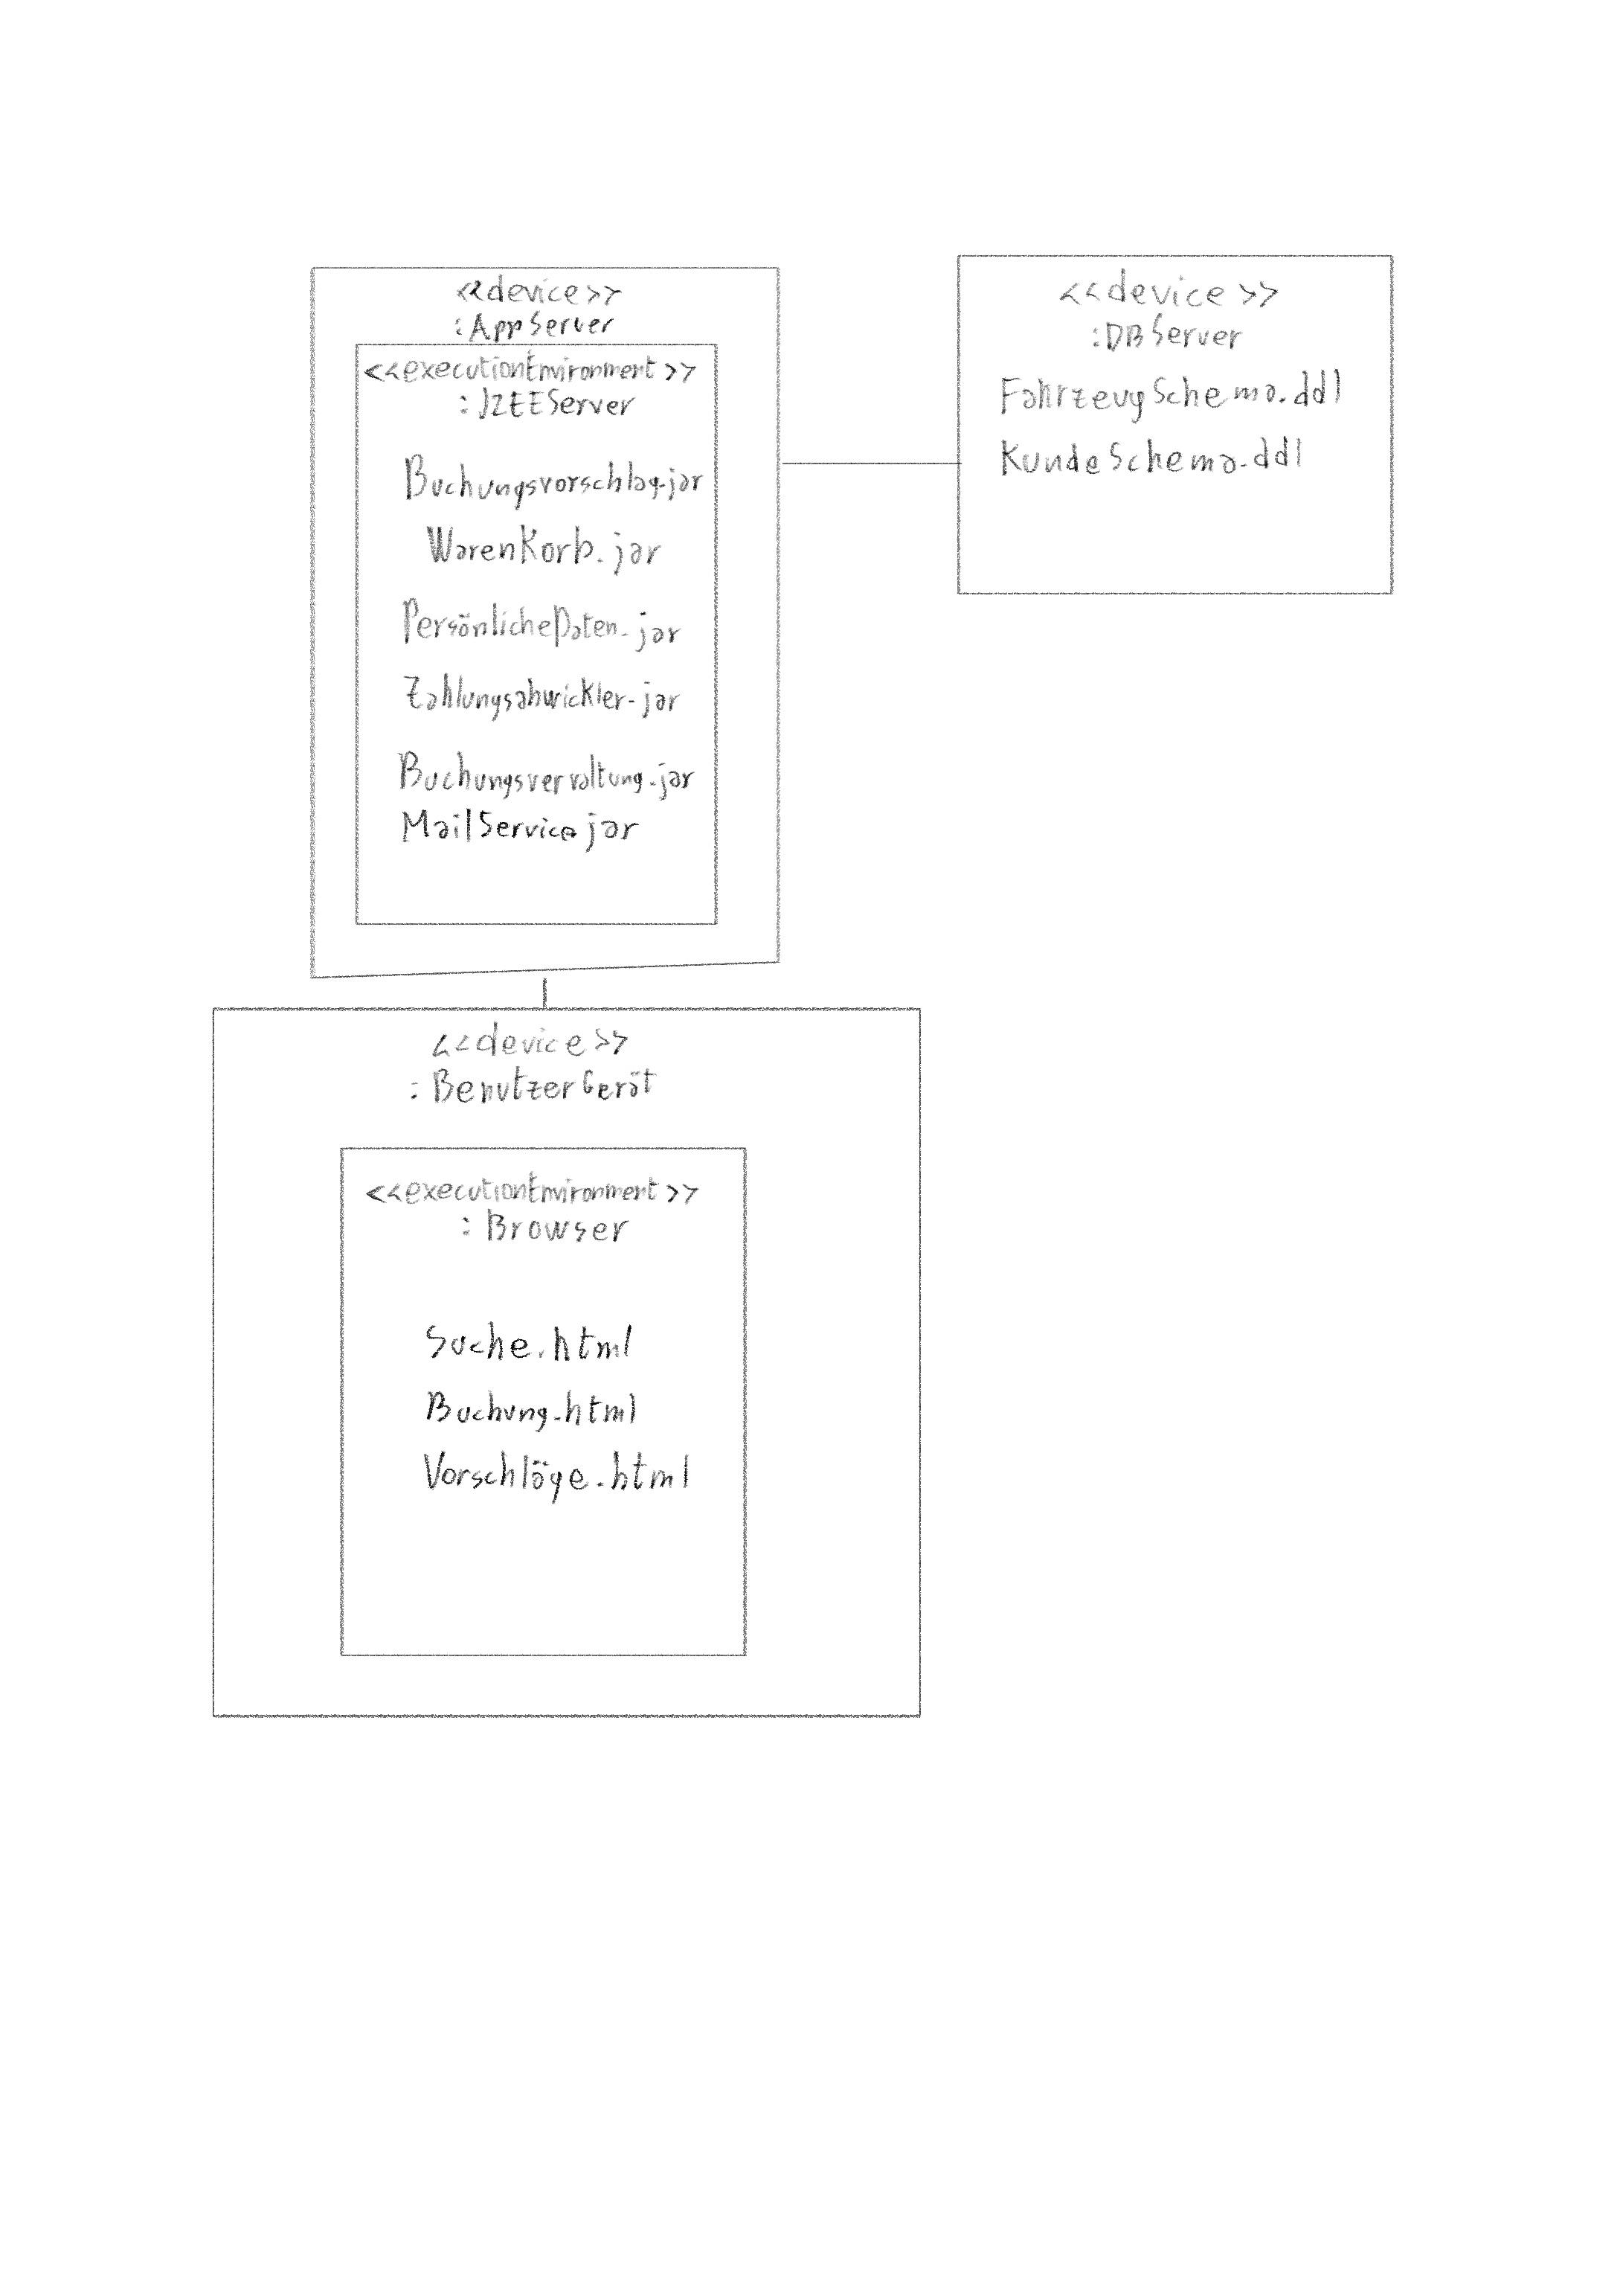 <<device>>
:AppServer
<<executionEnvironment>>
:J2EEServer
Buchungsvorschlag.jar
WarenKorb.jar
PersönlicheDaten.jar
Zahlungsabwickler.jar
Buchungsverwaltung.jar
MailService.jar
<<device>>
:DBServer
FahrzeugSchema.ddl
KundeSchema.ddl
<<device>>
:BenutzerGerät
<<executionEnvironment>>
:Browser
Suche.html
Buchung.html
Vorschläge.html